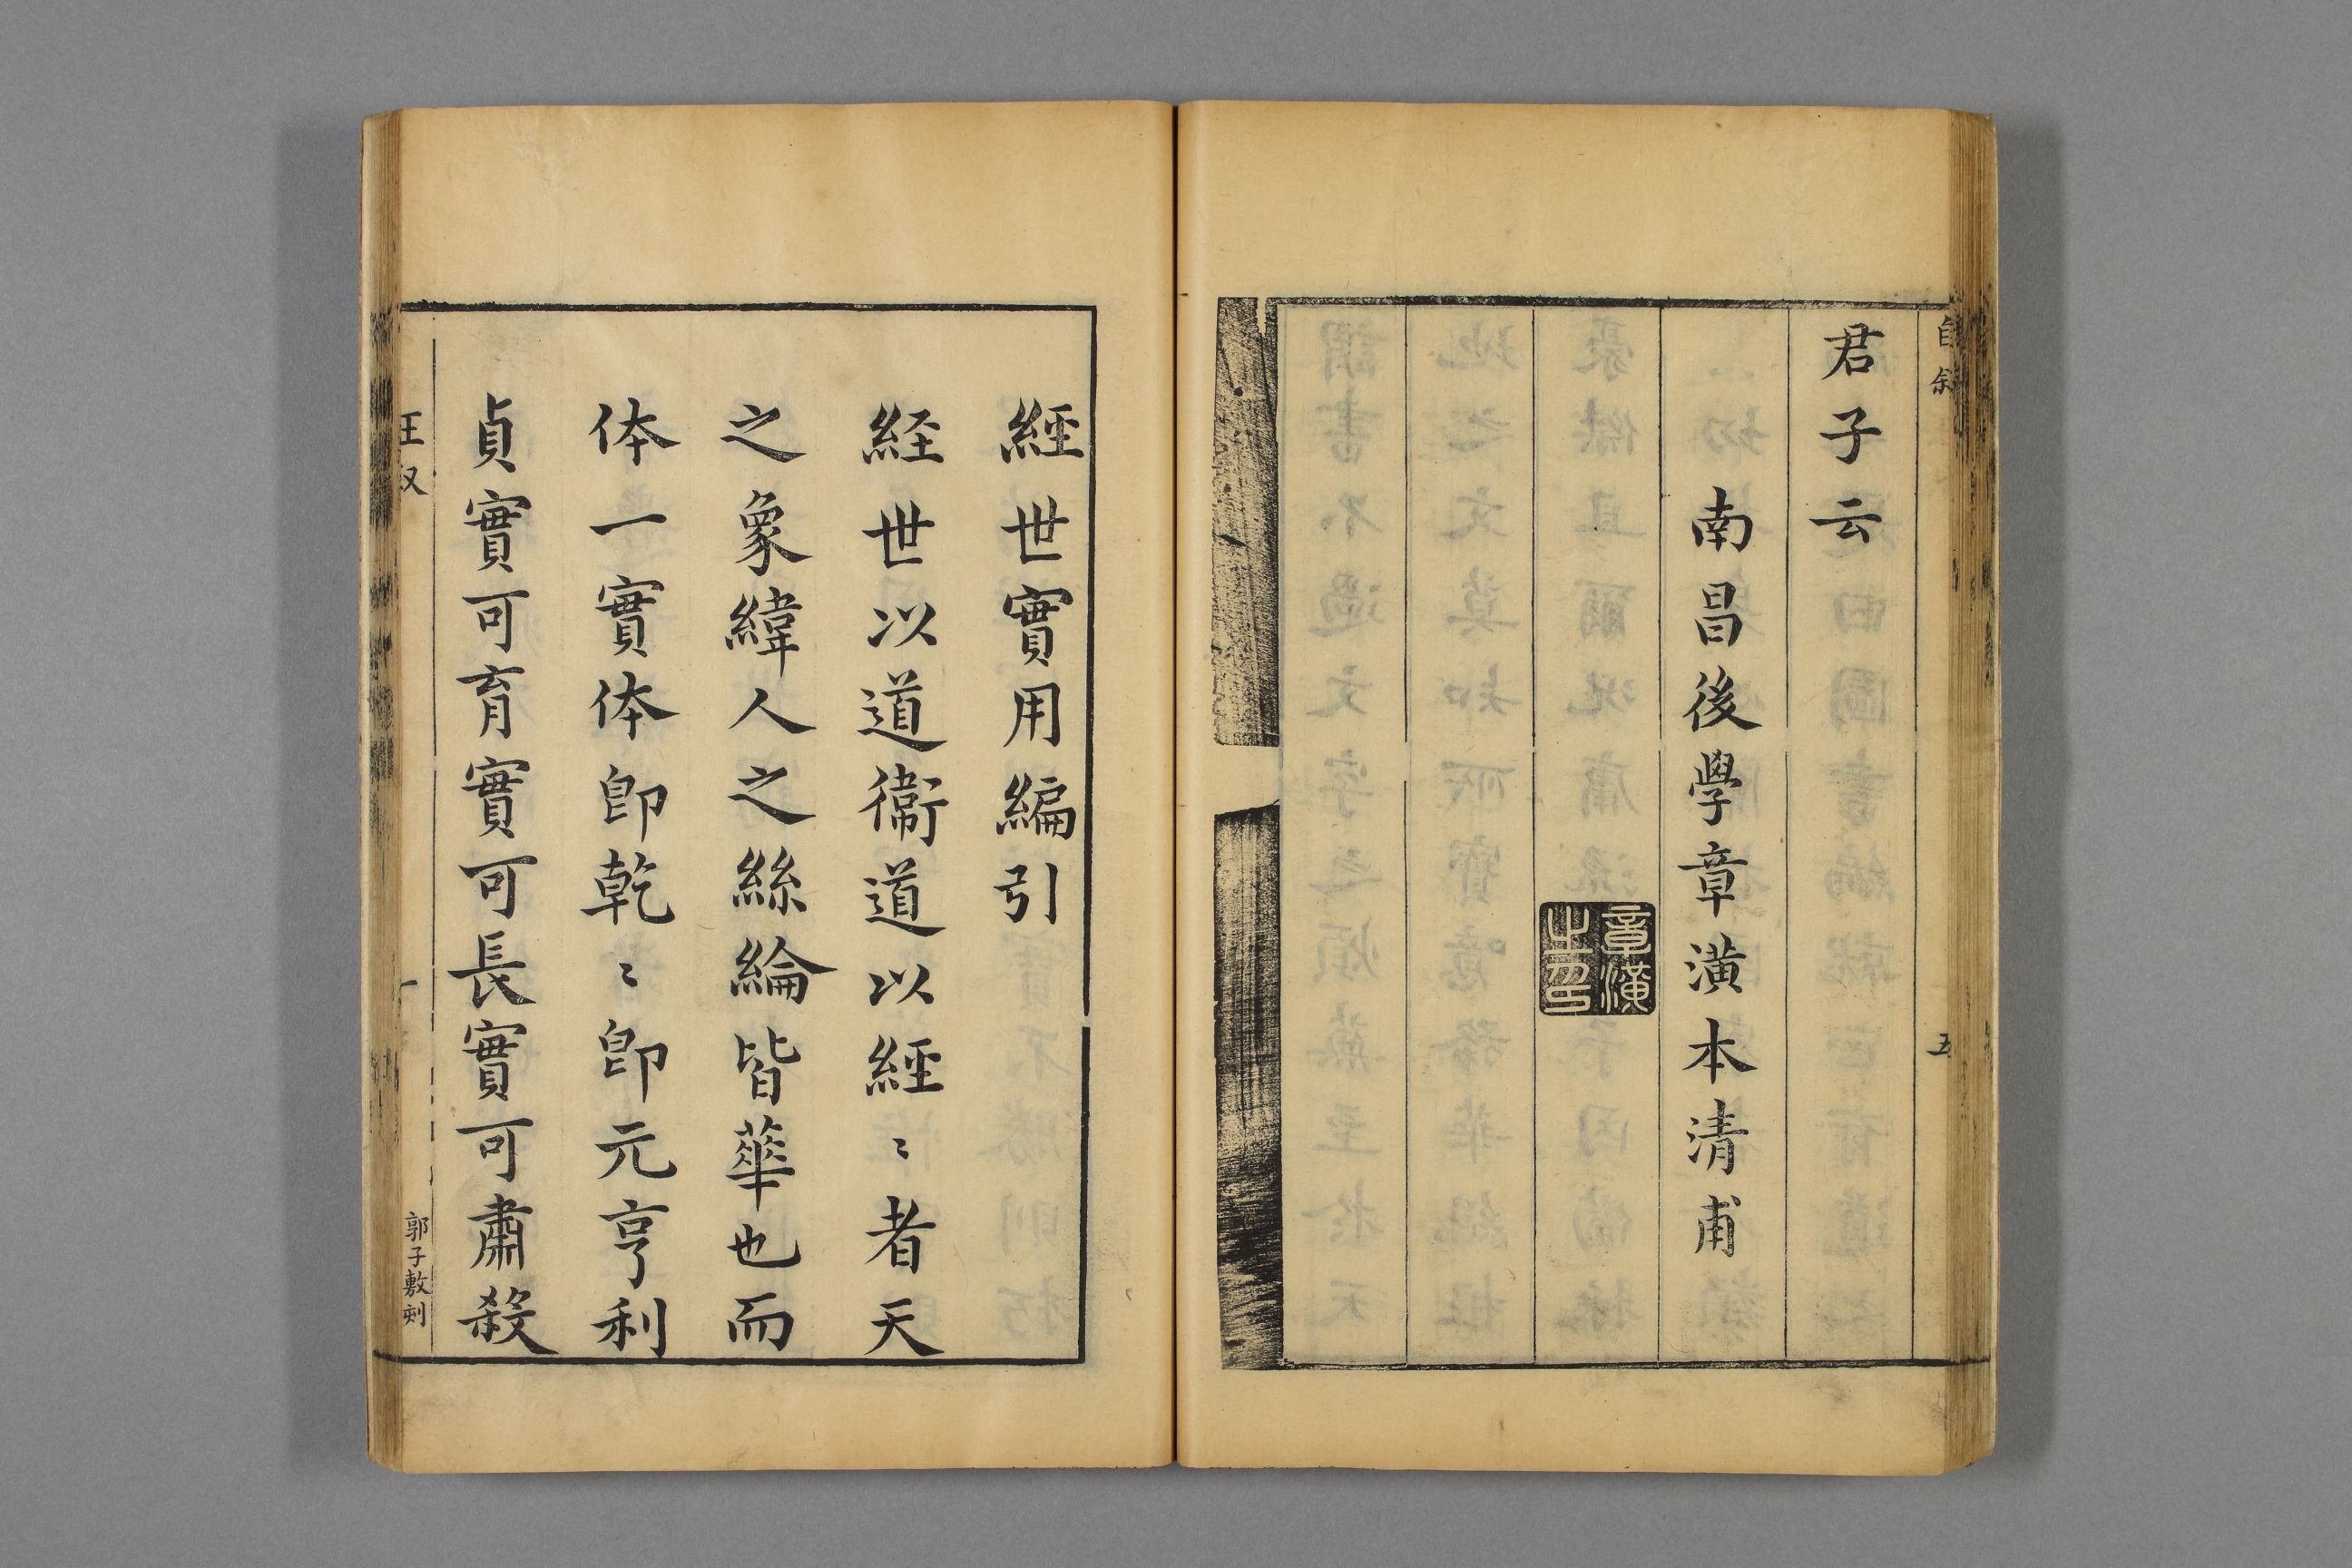 自叙
五
君子云
南昌後學章潢本清甫
章潢之印
經世實用編引
経世以道衞道以經〻者天
之象緯人之絲綸皆華也而
体一實体即乾〻即元亨利
貞實可育實可長實可肅殺
王叙
一
郭子敷刻